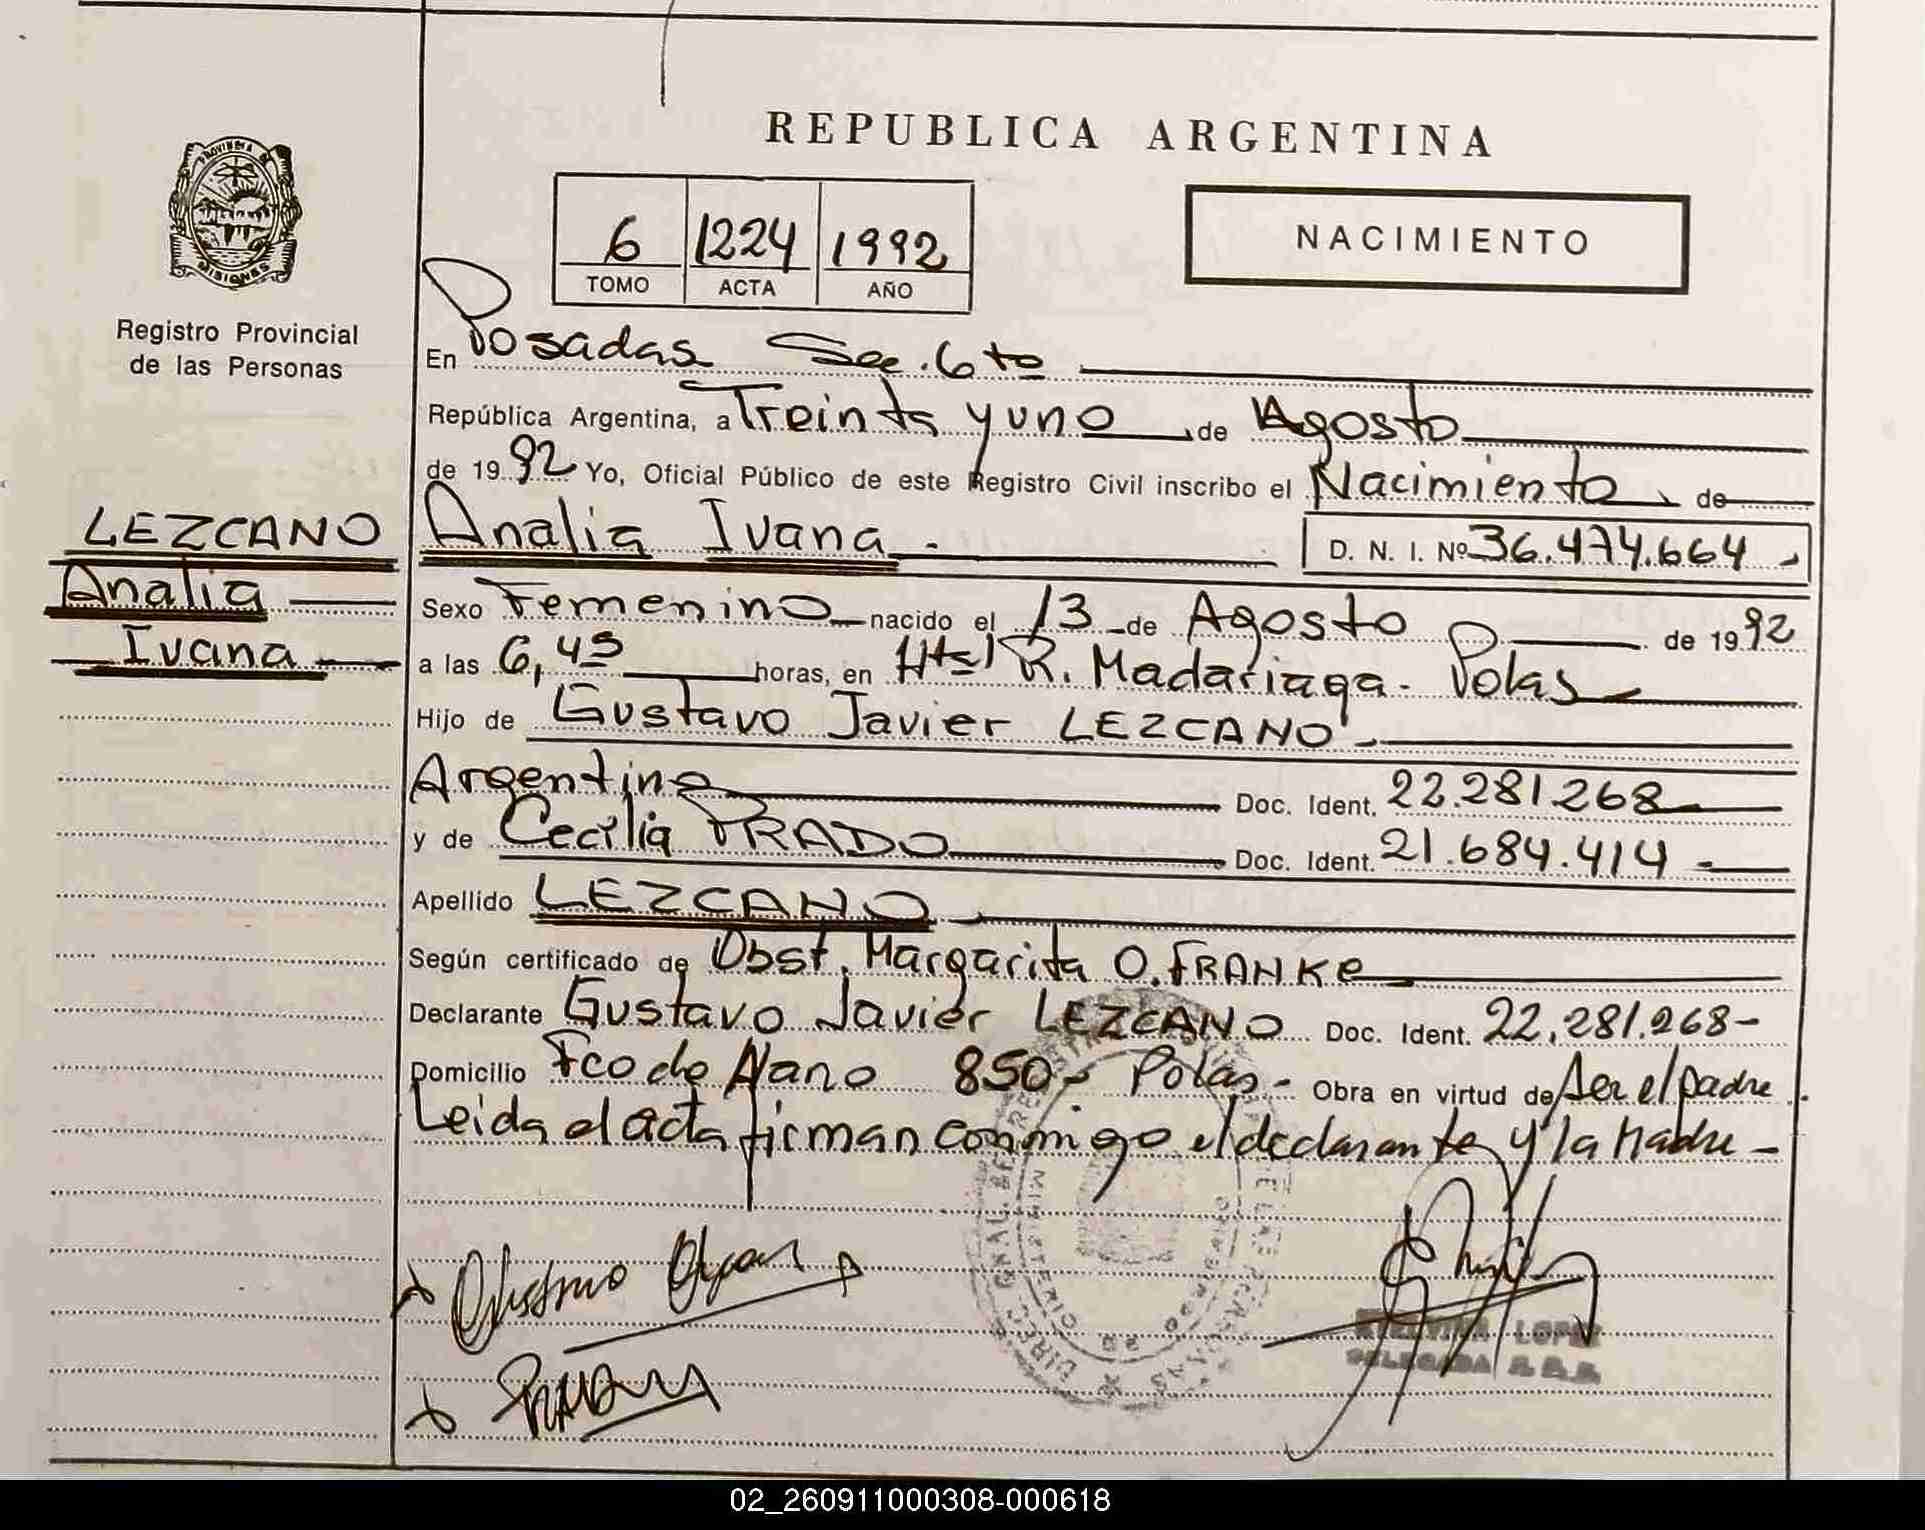 REPUBLICA ARGENTINA
PROVINCIA DE MISIONES
6 1224 1992
TOMO ACTA AÑO
NACIMIENTO
Registro Provincial
de las Personas
LEZCANO
Analia
Ivana
En Posadas Sec. 6ta
República Argentina, a Treinta y uno de Agosto
de 1992 Yo, Oficial Público de este Registro Civil inscribo el Nacimiento de
Analia Ivana. D. N. I. Nº 36.474.664
Sexo Femenino nacido el 13 de Agosto de 1992
a las 6,45 horas, en Htal R. Madariaga. Pdas
Hijo de Gustavo Javier LEZCANO
Argentino Doc. Ident. 22.281.268
y de Cecilia PRADO Doc. Ident. 21.684.414
Apellido LEZCANO
Según certificado de Obst. Margarita O. FRANKE
Declarante Gustavo Javier LEZCANO Doc. Ident. 22.281.268-
Domicilio Fco de 850- Pdas- Obra en virtud de ser el padre
Leida el acta firman conmigo el declarante y la Madre-
LOPEZ
DELEGADA
02_260911000308-000618